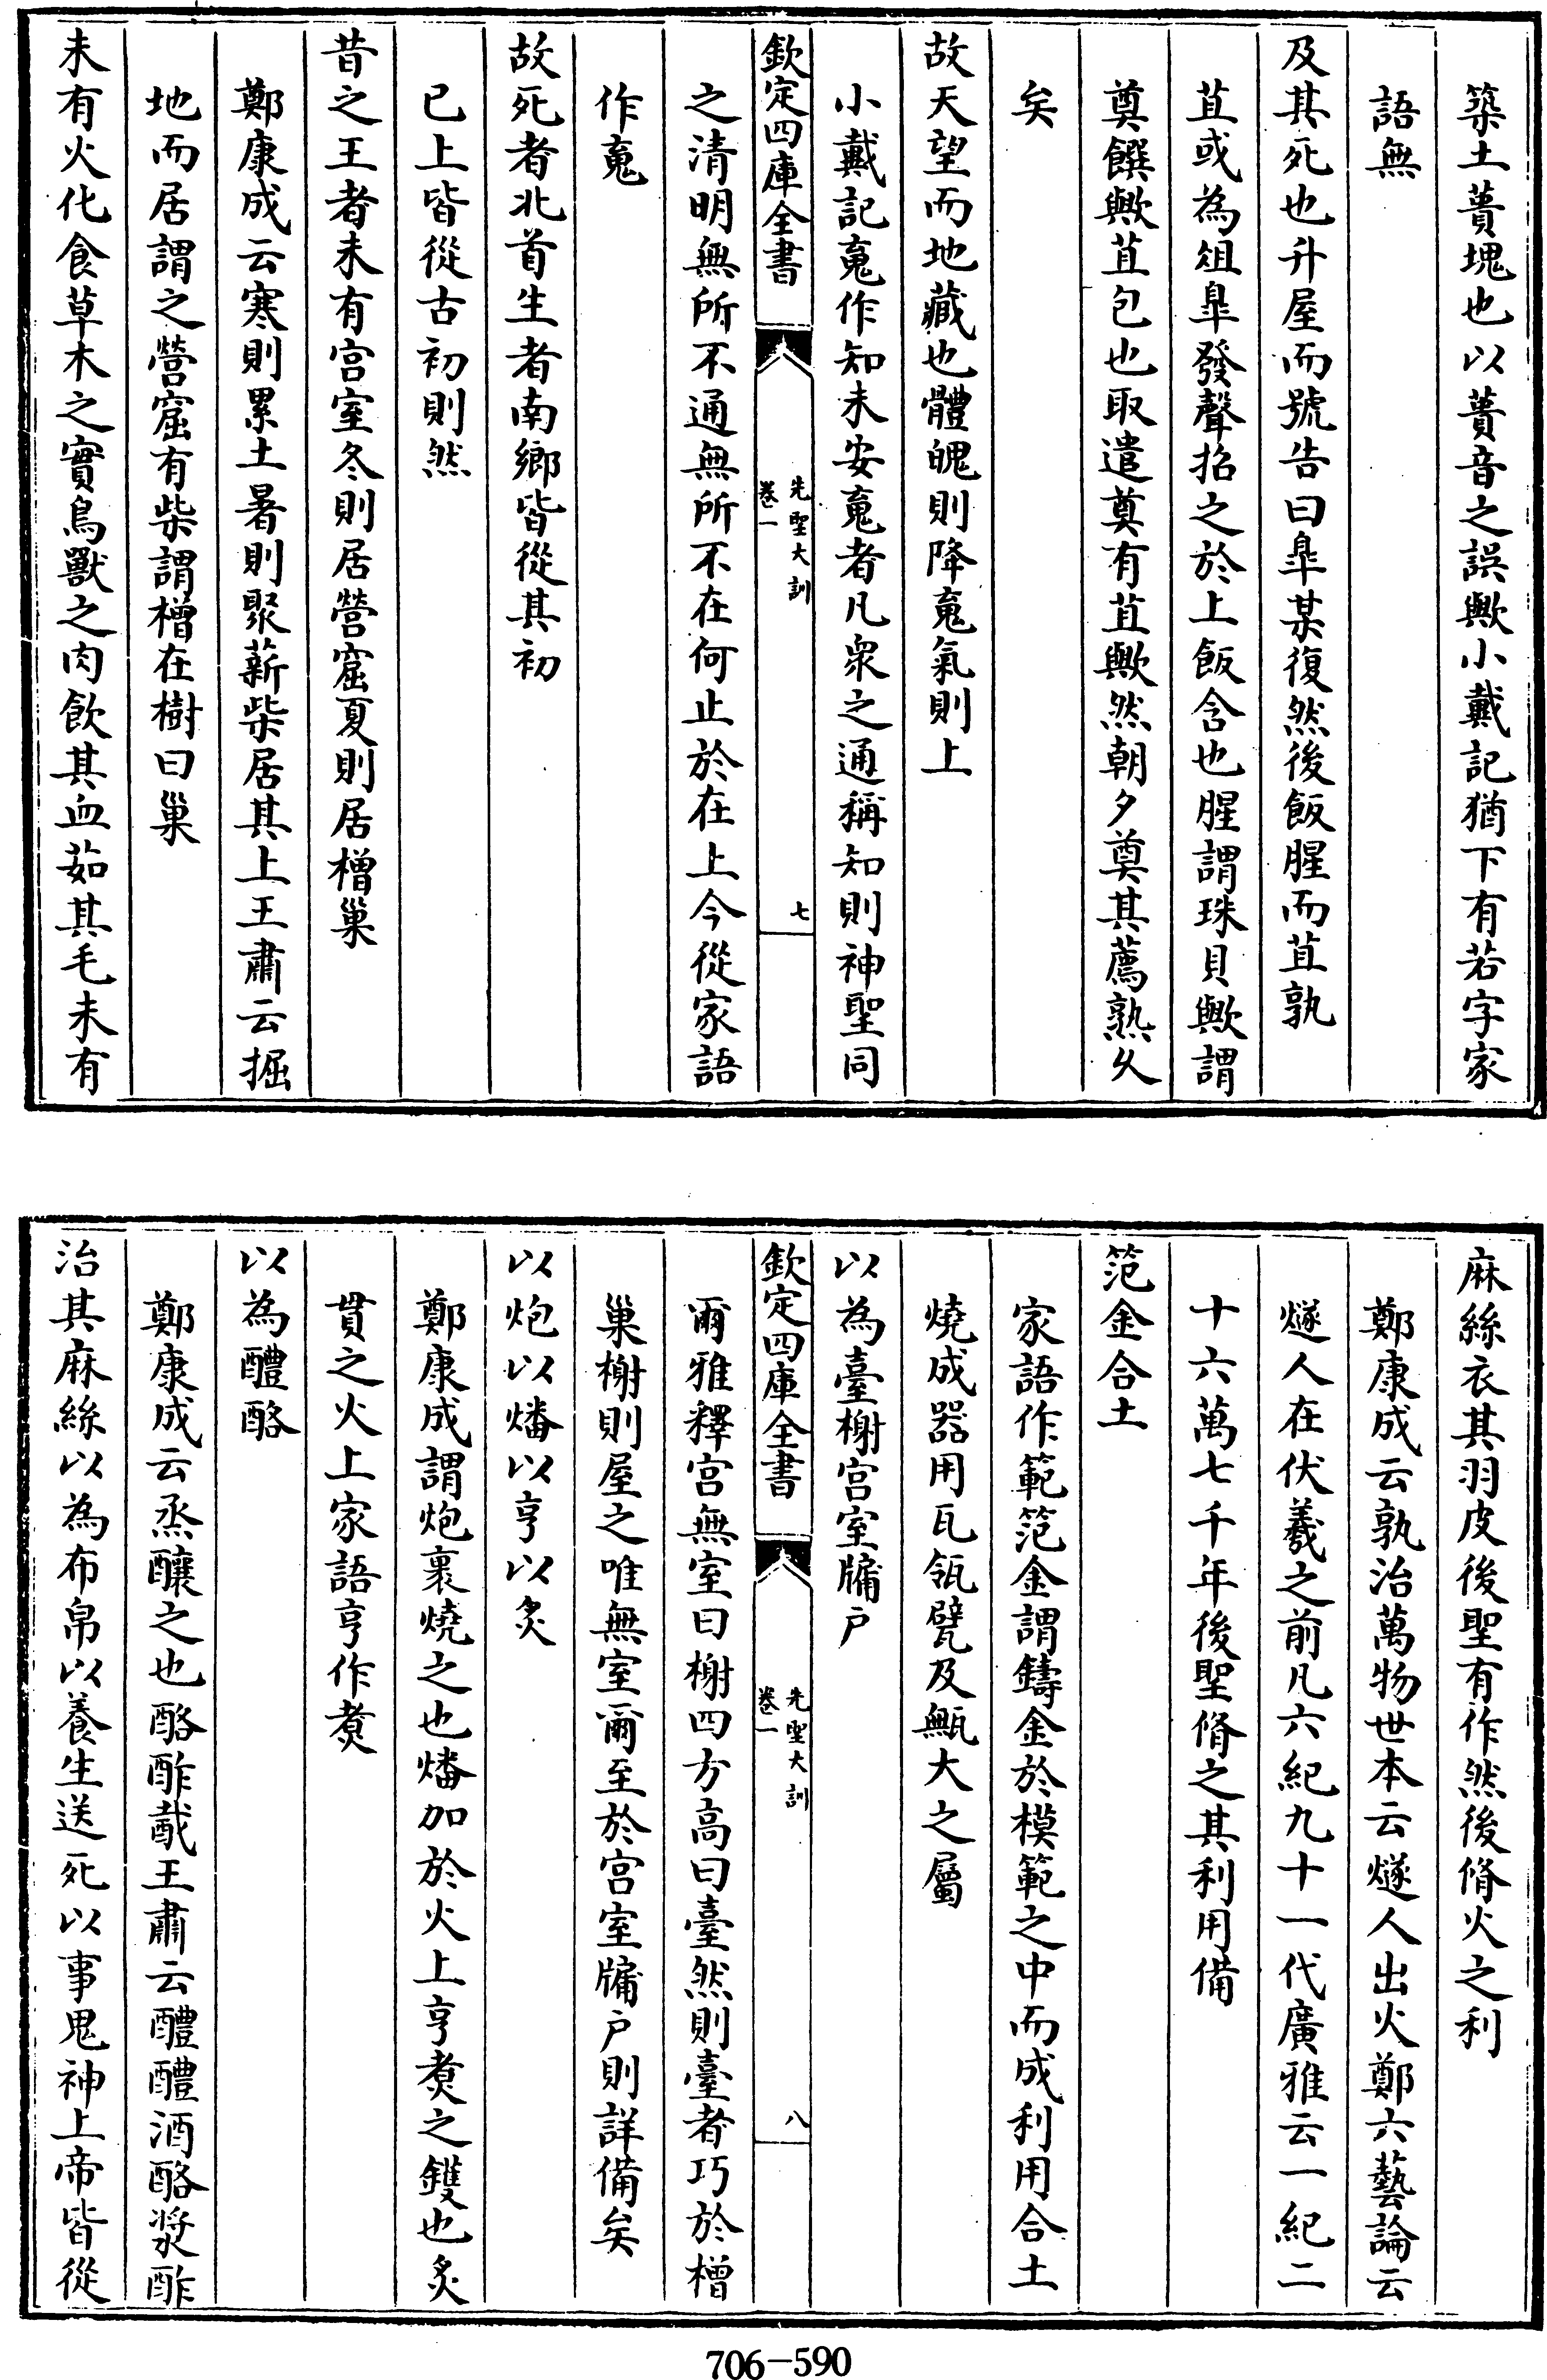 築土蕢塊也以蕢音之誤歟小戴記猶下有若字家
語無
及其死也升屋而號告曰臯某復然後飯腥而苴孰
苴或為俎臯發聲招之於上飯含也腥謂珠貝歟謂
奠饌歟苴包也取遣奠有苴歟然朝夕奠其薦熟久
矣
故天望而地藏也體魄則降䰟氣則上
小戴記䰟作知未安䰟者凡衆之通稱知則神聖同
欽定四庫全書
先聖大訓
卷一
七
之清明無所不通無所不在何止於在上今從家語
作䰟
故死者北首生者南鄉皆從其初
已上皆從古初則然
昔之王者未有宫室冬則居營窟夏則居橧巢
鄭康成云寒則累土暑則聚薪柴居其上王肅云掘
地而居謂之營窟有柴謂橧在樹曰巢
未有火化食草木之實鳥獸之肉飲其血茹其毛未有
麻絲衣其羽皮後聖有作然後脩火之利
鄭康成云孰治萬物世本云燧人出火鄭六藝論云
燧人在伏羲之前凡六紀九十一代廣雅云一紀二
十六萬七千年後聖脩之其利用備
笵金合土
家語作範笵金謂鑄金於模範之中而成利用合土
燒成器用瓦瓴甓及甒大之屬
以為臺榭宫室牖户
欽定四庫全書
先聖大訓
卷一
八
爾雅釋宫無室曰榭四方高曰臺然則臺者巧於橧
巢榭則屋之唯無室爾至於宫室牖户則詳備矣
以炮以燔以亨以炙
鄭康成謂炮裹燒之也燔加於火上亨煑之鑊也炙
貫之火上家語亨作煑
以為醴酪
鄭康成云烝釀之也酪酢酨王肅云醴醴酒酪漿酢
治其麻絲以為布帛以養生送死以事鬼神上帝皆從
706-590